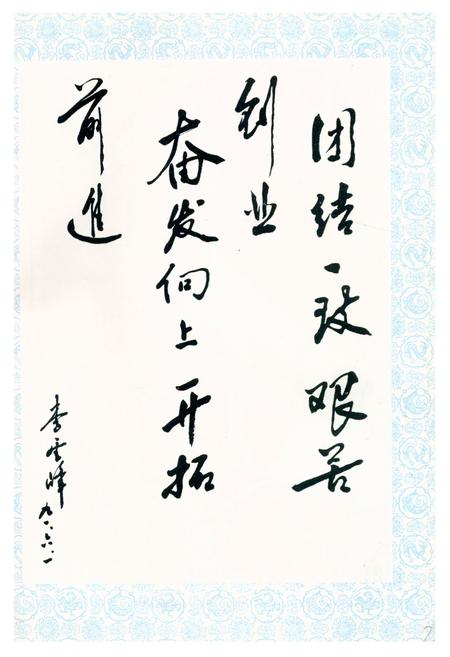 团结一致艰苦
创业
奋发向上开拓
前進
李云峰
九八.六.一